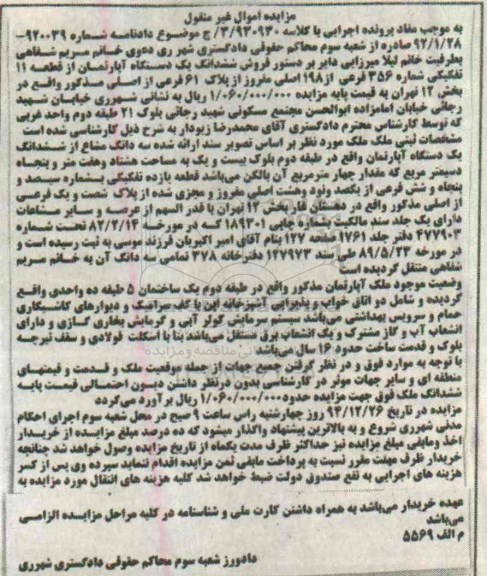 مزایده اموال غیر منقول
به موجب مفاد پرونده اجرایی با کلاسه ۳/۹۳۰۹۳۰ ج موضوع دادنامه شماره ۹۲۰۰۳۹-
۹۲/۱/۲۸ صادره از شعبه سوم محاکم حقوقی دادگستری شهر ری دعوی خانم مریم شفاهی
بطرفیت خانم لیلا میرزایی دایر بر دستور فروش ششدانگ یک دستگاه آپارتمان از قطعه ۱۱
تفکیکی شماره ۳۵۶ فرعی از۱۹۸ اصلی مفروز از پلاک ۶۱ فرعی از اصلی مذکور واقع در
بخش ۱۲ تهران به قیمت پایه مزایده ۱/۰۶۰/۰۰۰/۰۰۰ ریال به نشانی شهرری خیابان شهید
رجائی خیابان امامزاده ابوالحسن مجتمع مسکونی شهید رجائی بلوک ۲۱ طبقه دوم واحد غربی
که توسط کارشناس محترم دادگستری آقای محمدرضا زیودار به شرح ذیل کارشناسی شده است
مشخصات ثبتی ملک ملک مورد نظر بر اساس تصویر سند ارائه شده سه دانگ مشاع از ششدانگ
یک دستگاه آپارتمان واقع در طبقه دوم بلوک بیست و یک به مساحت هشتاد وهفت متر و پنجاه
دسیمتر مربع که مقدار چهار مترمربع آن بالکن می‌باشد قطعه یازده تفکیکی بشماره سیصد و
پنجاه و شش فرعی از یکصد ونود وهشت اصلی مفروز و مجزی شده از پلاک شصت و یک فرعی
از اصلی مذکور واقع در دهستان غار بخش ۱۲ تهران با قدر السهم از عرصه و سایر مشاعات
دارای یک جلد سند مالکیت بشماره چاپی ۱۸۹۳۰۱ که در مورخه ۸۲/۲/۱۴ تحت شماره
۴۷۷۹۰۳ دفتر جلد ۱۷۶۱ صفحه ۱۲۷ بنام آقای امیر اکبریان فرزند موسی به ثبت رسیده است و
در مورخه ۸۹/۵/۲۳ طی سند ۱۲۷۹۷۳ دفترخانه ۳۷۸ تمامی سه دانگ آن به خانم مریم
شفاهی منتقل گردیده است
وضعیت موجود ملک آپارتمان مذکور واقع در طبقه دوم یک ساختمان ۵ طبقه ده واحدی واقع
گردیده و شامل دو اتاق خواب و پذیرایی آشپزخانه اپن با کف سرامیک و دیوارهای کاشیکاری
حمام و سرویس بهداشتی می‌باشد سیستم سرمایش کولر آبی و گرمایش بخاری گازی و دارای
انشعاب آب و گاز مشترک و یک انشعاب برق مستقل می‌باشد بنا با اسکلت فولادی و سقف تیرچه
بلوک و قدمت ساخت حدود ۱۶ سال می‌باشد
با توجه به موارد فوق و در نظر گرفتن جمیع جهات از جمله موقعیت ملک و قدمت و قیمتهای
منطقه ای و سایر جهات موثر در کارشناسی بدون درنظر داشتن دیون احتمالی قیمت پایه
ششدانگ ملک فوق جهت مزایده حدود۱/۰۶۰/۰۰۰/۰۰۰ ریال برآورد می‌گردد
مزایده در تاریخ ۹۳/۱۲/۲۶ روز چهارشنبه راس ساعت ۹ صبح در محل شعبه سوم اجرای احکام
مدنی شهرری شروع و به بالاترین پیشنهاد واگذار میشود که ده درصد مبلغ مزایده از خریدار
اخذ ومابقی مبلغ مزایده نیز حداکثر ظرف مدت یکماه از تاریخ مزایده وصول خواهد شد چنانچه
خریدار ظرف مهلت مقرر نسبت به پرداخت مابقی ثمن مزایده اقدام ننماید سپرده وی پس از کسر
هزینه های اجرایی به نفع صندوق دولت ضبط خواهد شد کلیه هزینه های انتقال مورد مزایده به
عهده خریدار می‌باشد به همراه داشتن کارت ملی و شناسنامه در کلیه مراحل مزایده الزامی
می‌باشد
م الف ۵۵۶۹
دادورز شعبه سوم محاکم حقوقی دادگستری شهرری